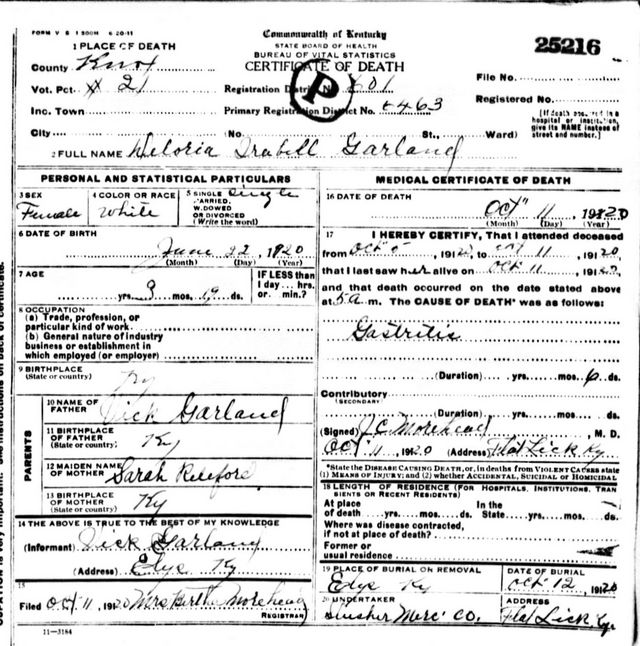 FORM V S 1 500M 6-20-11
Commonwealth of Kentucky
STATE BOARD OF HEALTH
BUREAU OF VITAL STATISTICS
CERTIFICATE OF DEATH
25216
1 PLACE OF DEATH
County Knox
Vot. Pct. # 21
Inc. Town
City
Registration District No. 601
Primary Registration District No. 6463
P
No. St., Ward)
File No.
Registered No.
[If death occurred in a hospital or institution, give its NAME instead of street and number.]
2 FULL NAME Deloria Garland
PERSONAL AND STATISTICAL PARTICULARS
3 SEX Female
4 COLOR OR RACE White
5 SINGLE MARRIED, WIDOWED OR DIVORCED (Write the word) Single
6 DATE OF BIRTH
June 22, 1920
(Month) (Day) (Year)
7 AGE
yrs. 3 mos. 19 ds.
IF LESS than 1 day... hrs. or min.?
8 OCCUPATION
(a) Trade, profession, or particular kind of work
(b) General nature of industry business or establishment in which employed (or employer)
9 BIRTHPLACE
(State or country) Ky
PARENTS
10 NAME OF FATHER Dick Garland
11 BIRTHPLACE OF FATHER (State or country) Ky
12 MAIDEN NAME OF MOTHER Sarah
13 BIRTHPLACE OF MOTHER (State or country) Ky
14 THE ABOVE IS TRUE TO THE BEST OF MY KNOWLEDGE
(Informant) Dick Garland
(Address) Elys Ky
15
Filed Oct 11, 1920 Mrs Bertha Morehead
REGISTRAR
11-3184
MEDICAL CERTIFICATE OF DEATH
16 DATE OF DEATH
Oct 11, 1920
(Month) (Day) (Year)
17 I HEREBY CERTIFY, That I attended deceased
from Oct 5, 1920, to Oct 11, 1920
that I last saw her alive on Oct 11, 1920,
and that death occurred on the date stated above
at 5 a m. The CAUSE OF DEATH* was as follows:
Gastritis
(Duration) yrs. mos. 6 ds.
Contributory
(SECONDARY)
(Duration) yrs. mos. ds.
(Signed) J C Morehead, M. D.
Oct 11 1920 (Address) Flat Lick Ky
*State the DISEASE CAUSING DEATH, or, in deaths from VIOLENT CAUSES state (1) MEANS OF INJURY; and (2) whether ACCIDENTAL, SUICIDAL or HOMICIDAL
18 LENGTH OF RESIDENCE (FOR HOSPITALS, INSTITUTIONS, TRANSIENTS OR RECENT RESIDENTS)
At place of death yrs. mos. ds.
In the State yrs. mos. ds.
Where was disease contracted, if not at place of death?
Former or usual residence
19 PLACE OF BURIAL OR REMOVAL
Elys Ky
DATE OF BURIAL
Oct 12, 1920
20 UNDERTAKER
Slusher Merc. Co.
ADDRESS
Flat Lick, Ky